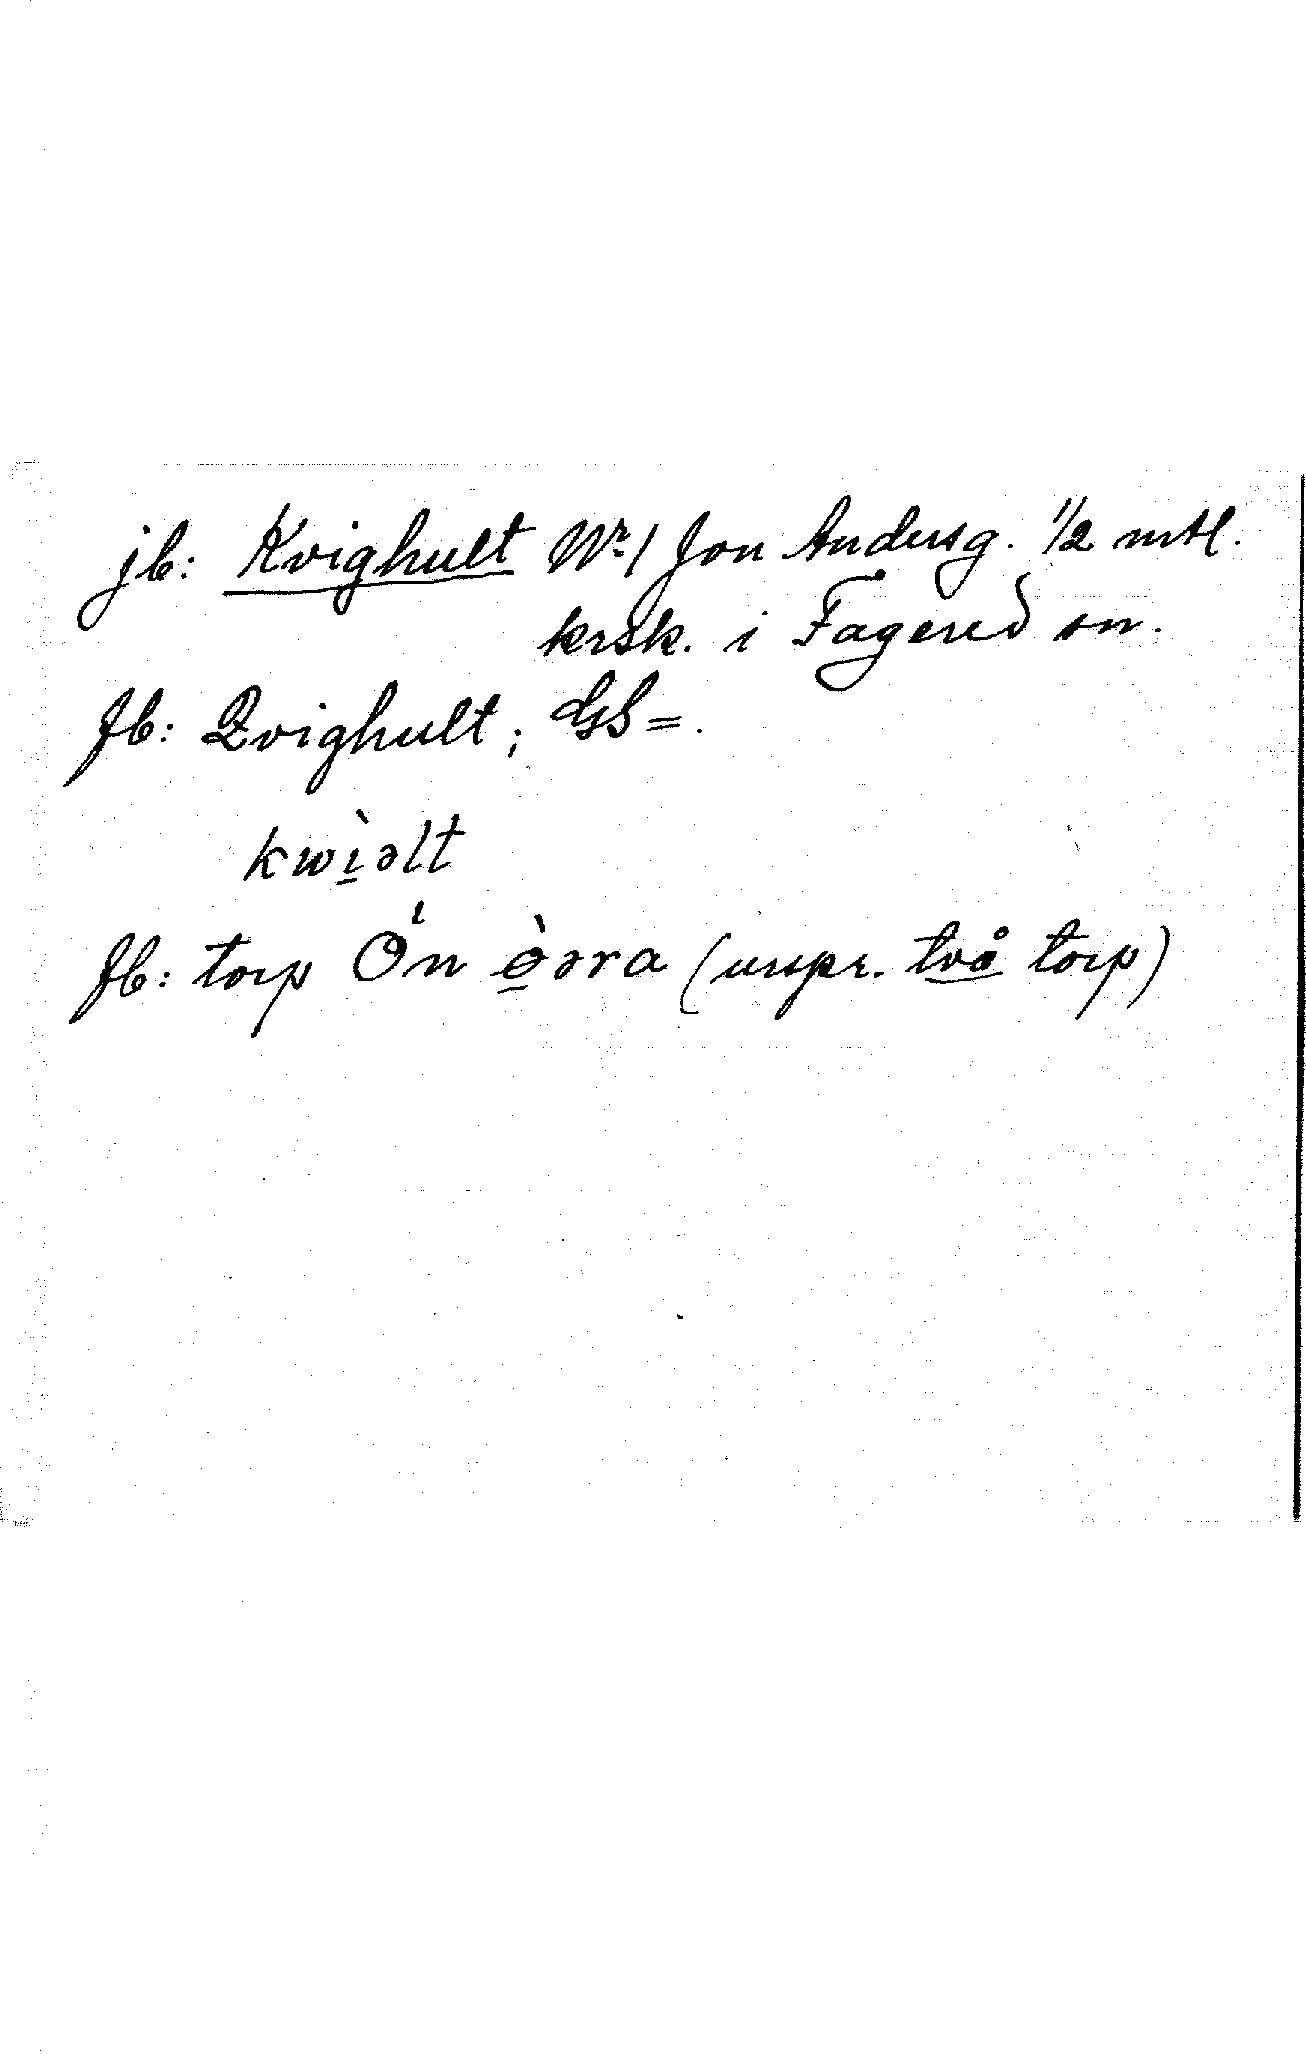 jb: Kvighult Nr. 1 Jon Andersg. 1/2 mtl.
krsk. i Fagered sn.
fb: Qvighult; GS =.
kwı̀əlt
fb: torp Ön ö̀əra (urspr. två torp)